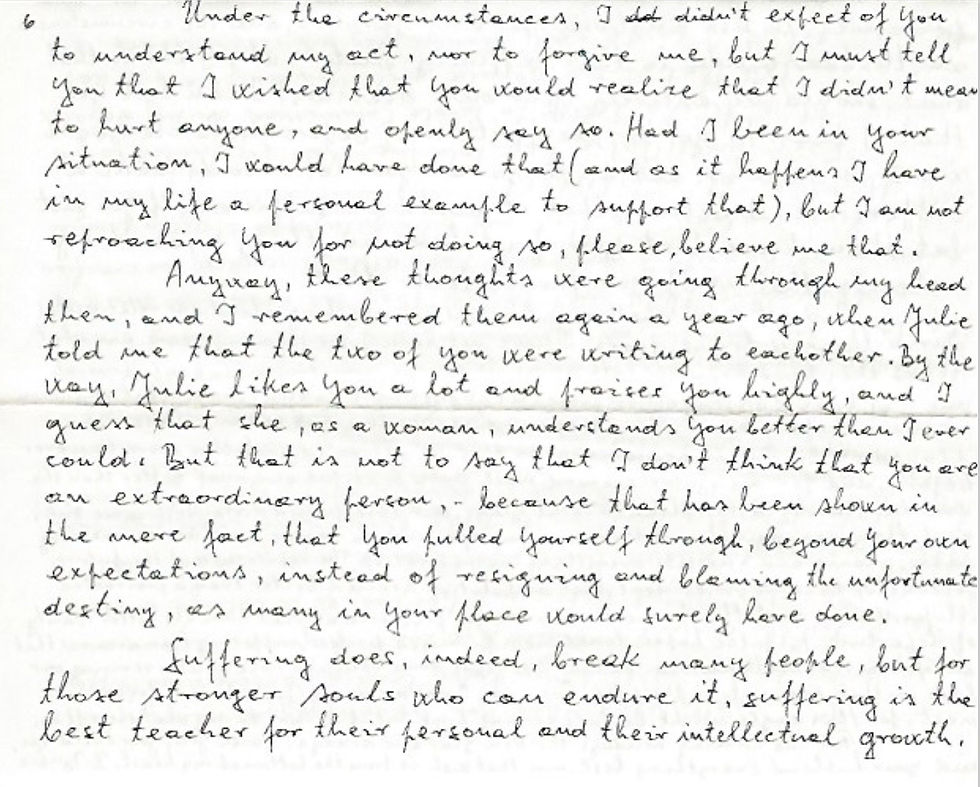 6 Under the circumstances, I did didn't expect of you
to understand my act, nor to forgive me, but I must tell
you that I wished that you would realize that I didn't mean
to hurt anyone, and openly say so. Had I been in your
situation, I would have done that (and as it happens I have
in my life a personal example to support that), but I am not
reproaching you for not doing so, please, believe me that.
Anyway, these thoughts were going through my head
then, and I remembered them again a year ago, when Julie
told me that the two of you were writing to eachother. By the
way, Julie likes you a lot and praises you highly, and I
guess that she, as a woman, understands you better than I ever
could. But that is not to say that I don't think that you are
an extraordinary person, because that has been shown in
the mere fact, that you pulled yourself through, beyond your own
expectations, instead of resigning and blaming the unfortunate
destiny, as many in your place would surely have done.
Suffering does, indeed, break many people, but for
those stronger souls who can endure it, suffering is the
best teacher for their personal and their intellectual growth.